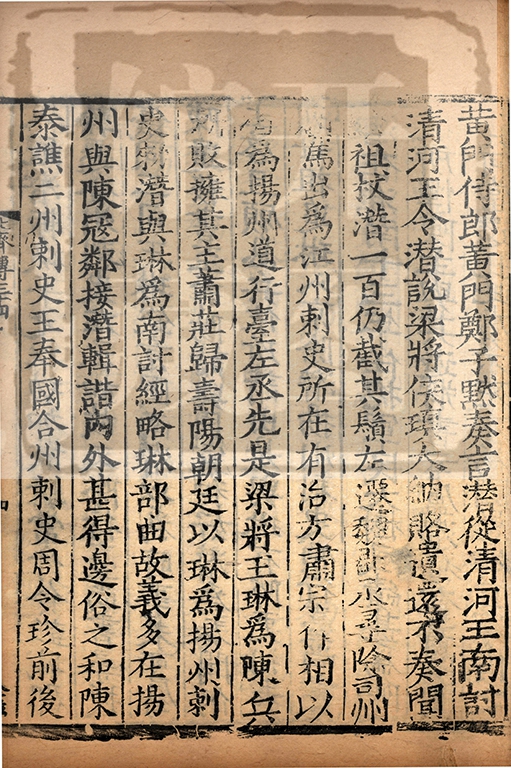 黃門侍郎黃門鄭子默奏言潛從清河王南討
清河王令潛說梁將侯瑱大納賂遺還不奏聞
祖杖潛一百仍截其鬚左遷魏尹丞尋除司州
駕出為江州刺史所在有治方肅宗作相以
潛為揚州道行臺左丞先是梁將王琳為陳兵
所敗擁其主蕭莊歸壽陽朝廷以琳為揚州刺
史敕潛與琳為南討經略琳部曲故義多在揚
州與陳寇鄰接潛輯諧內外甚得邊俗之和陳
秦譙二州刺史王奉國合州刺史周令珍前後